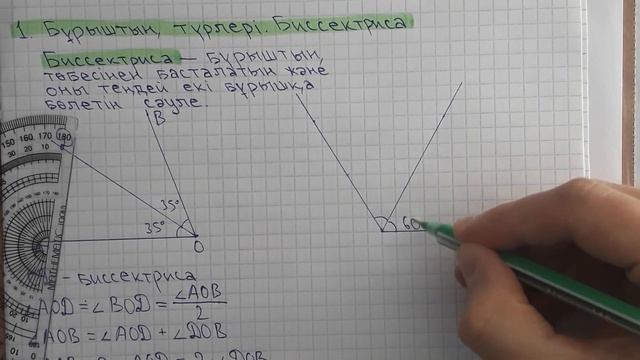 1. Бұрыштың түрлері. Биссектриса
Биссектриса — бұрыштың
төбесінен басталатын және
оны теңдей екі бұрышқа
бөлетін сәуле.
B
35°
35°
O
60
- биссектриса
AOD = ∠BOD = ∠AOB/2
∠AOB = ∠AOD + ∠DOB